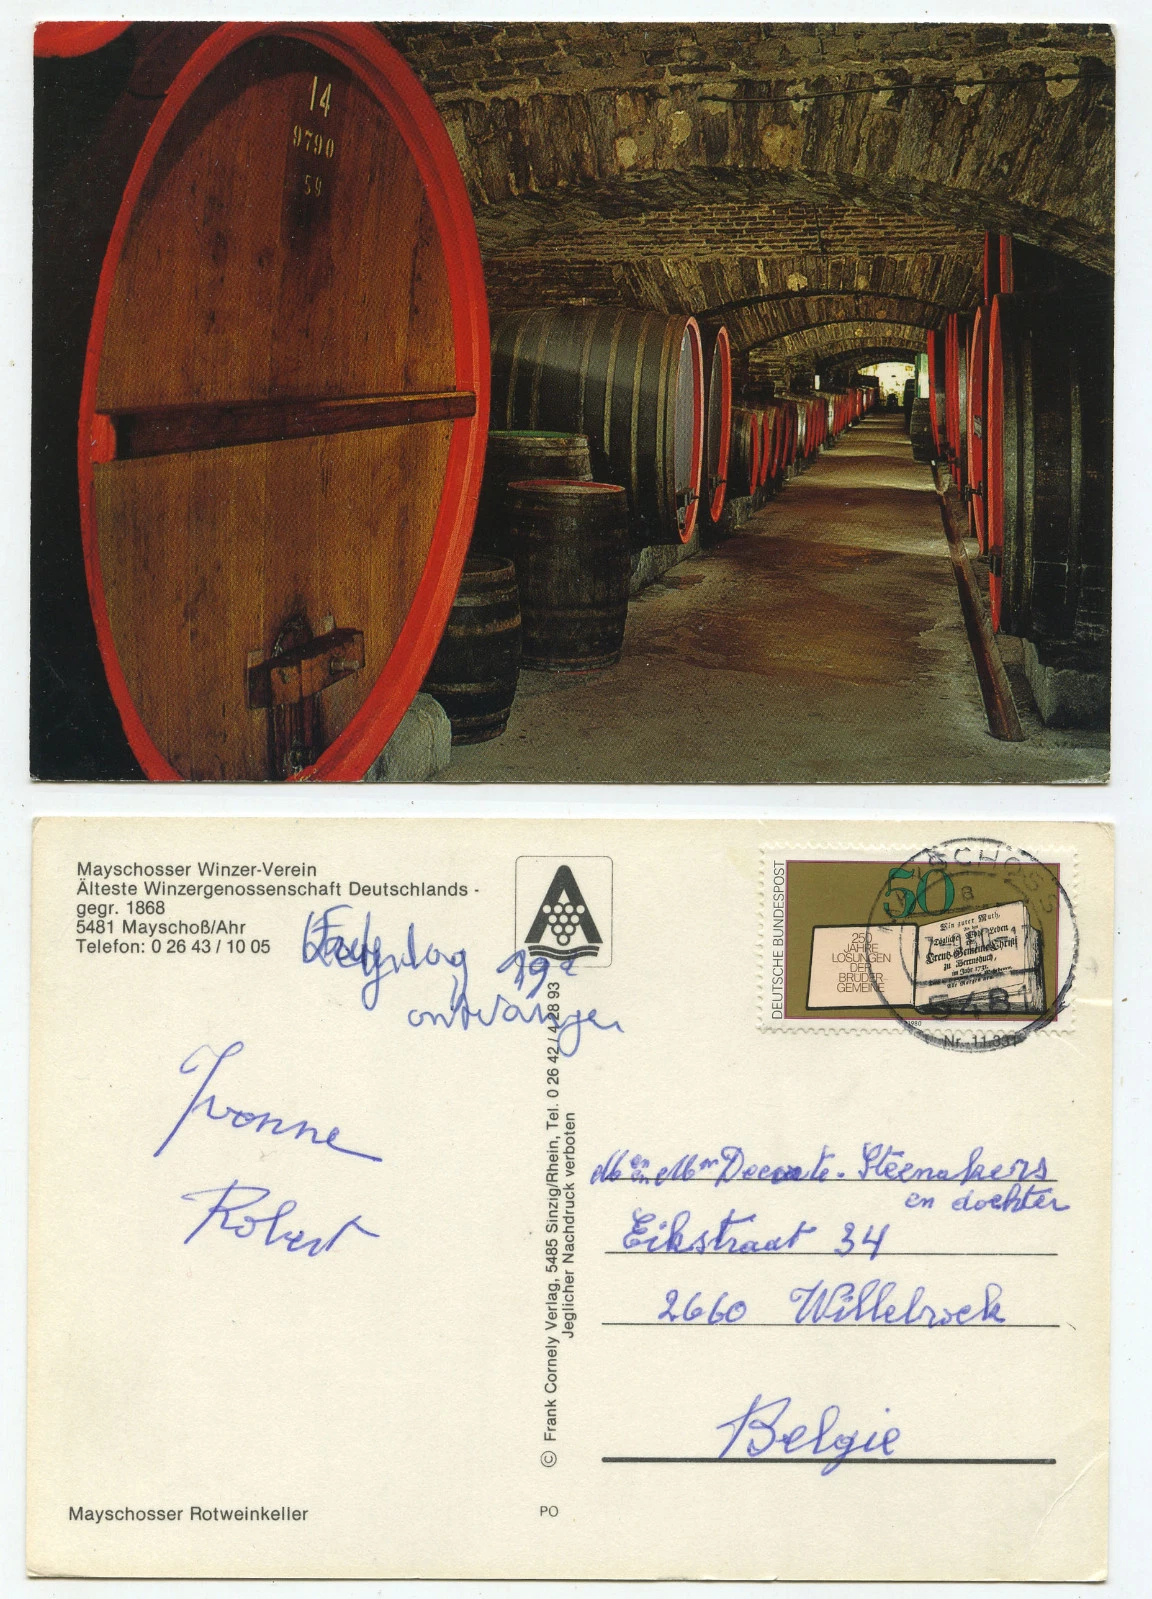 14
9790
59
Mayschosser Winzer-Verein
Älteste Winzergenossenschaft Deutschlands -
gegr. 1868
5481 Mayschoß/Ahr
Telefon: 0 26 43 / 10 05
19e
ontvangen
Yvonne
Robert
Mayschosser Rotweinkeller
© Frank Cornely Verlag, 5485 Sinzig/Rhein, Tel. 0 26 42 / 4 28 93
Jeglicher Nachdruck verboten
PO
DEUTSCHE BUNDESPOST
50
250
JAHRE
LOSUNGEN
DER
BRÜDER-
GEMEINE
Ein guter Muth,
Creutz-Gemeine Christi
zu Herrnhuth,
im Jahr 1731.
1980
5481
Nr. 11.331
Steenakers
en dochter
Eikstraat 34
2660 Willebroek
Belgie